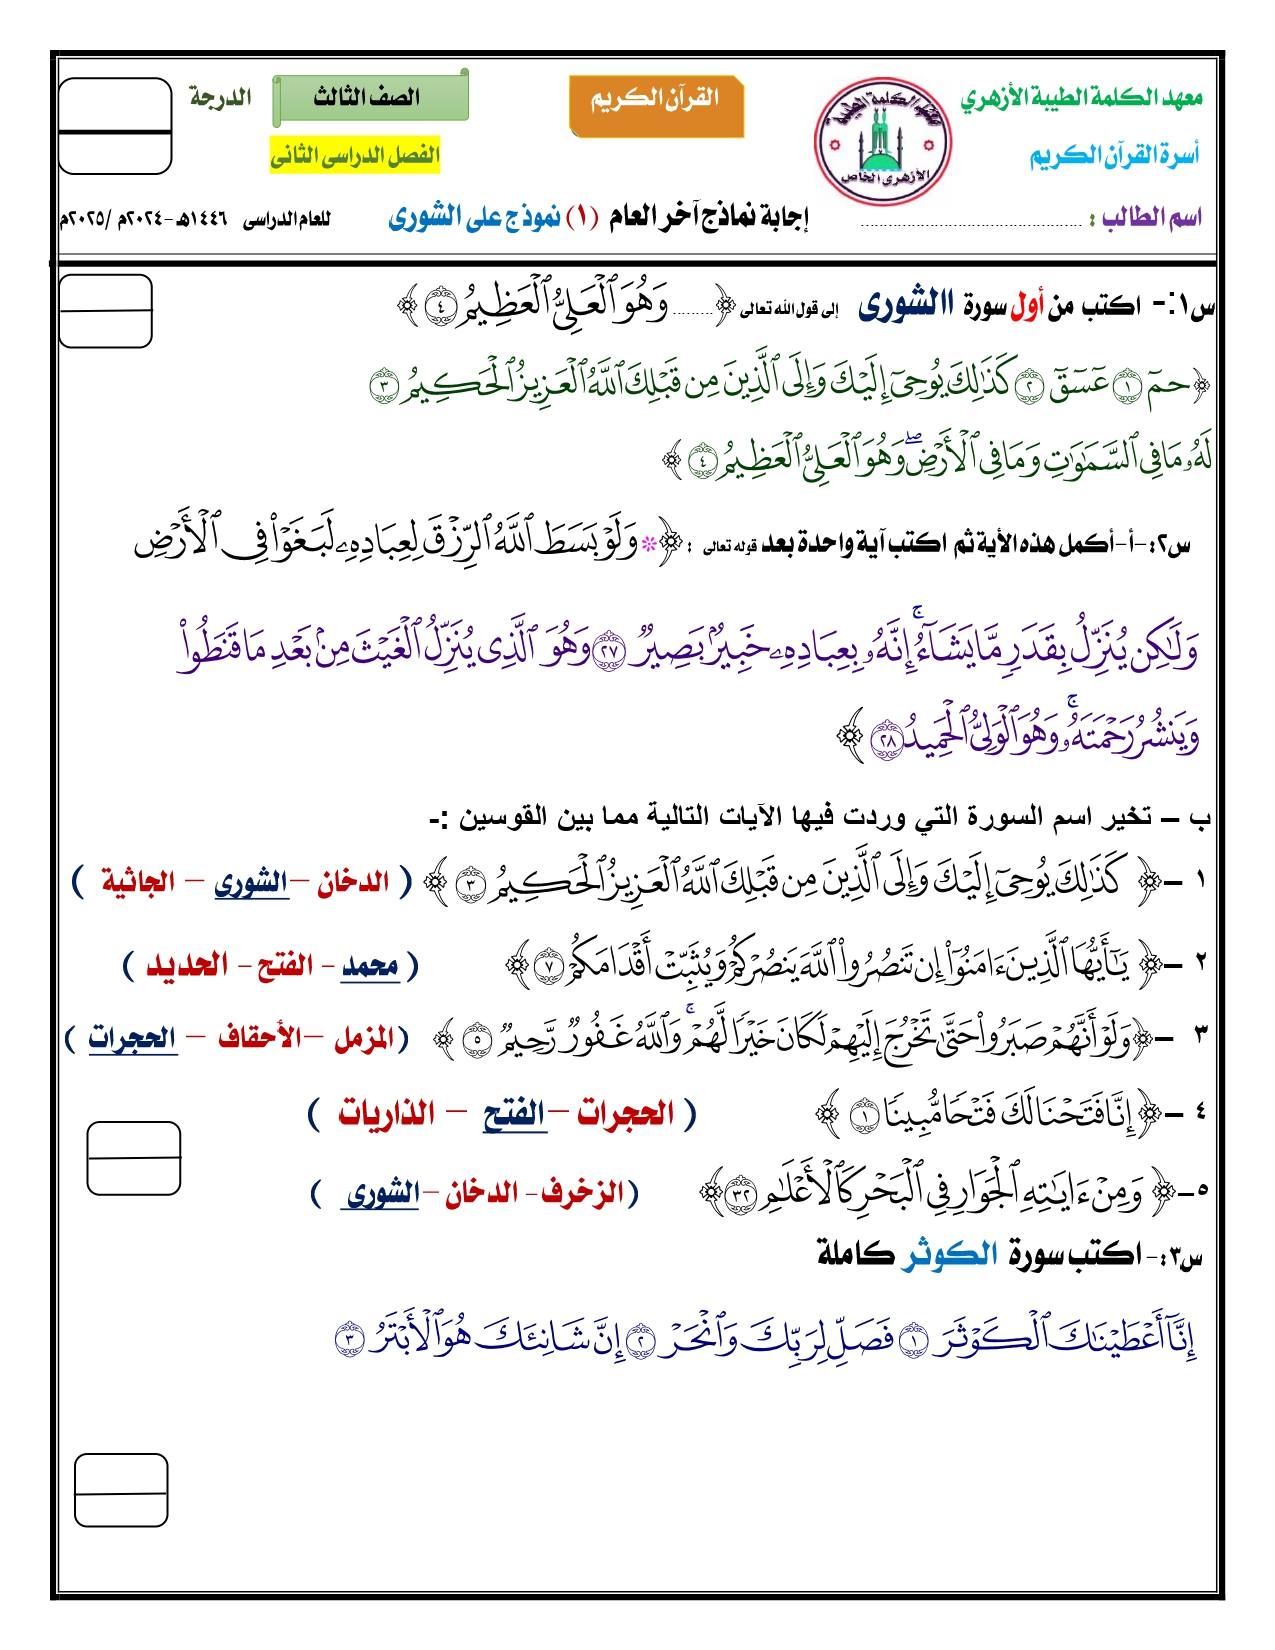 معهد الكلمة الطيبة الأزهري
القرآن الكريم
الصف الثالث
الدرجة
أسرة القرآن الكريم
الفصل الدراسى الثانى
معهد الكلمة الطيبة
الأزهرى الخاص
اسم الطالب : ................................................
إجابة نماذج آخر العام (١) نموذج على الشورى
للعام الدراسى ١٤٤٦هـ -٢٠٢٤م /٢٠٢٥م
س١:- اكتب من أول سورة االشورى إلى قول الله تعالى ﴿ ......... وَهُوَ ٱلْعَلِىُّ ٱلْعَظِيمُ ٤ ﴾
﴿ حمٓ ١ عٓسٓقٓ ٢ كَذَٰلِكَ يُوحِىٓ إِلَيْكَ وَإِلَى ٱلَّذِينَ مِن قَبْلِكَ ٱللَّهُ ٱلْعَزِيزُ ٱلْحَكِيمُ ٣
لَهُۥ مَا فِى ٱلسَّمَٰوَٰتِ وَمَا فِى ٱلْأَرْضِ ۖ وَهُوَ ٱلْعَلِىُّ ٱلْعَظِيمُ ٤ ﴾
س٢:-أ-أكمل هذه الأية ثم اكتب آية واحدة بعد قوله تعالى : ﴿ * وَلَوْ بَسَطَ ٱللَّهُ ٱلرِّزْقَ لِعِبَادِهِۦ لَبَغَوْا۟ فِى ٱلْأَرْضِ
وَلَٰكِن يُنَزِّلُ بِقَدَرٍ مَّا يَشَآءُ ۚ إِنَّهُۥ بِعِبَادِهِۦ خَبِيرٌۢ بَصِيرٌ ٢٧ وَهُوَ ٱلَّذِى يُنَزِّلُ ٱلْغَيْثَ مِنۢ بَعْدِ مَا قَنَطُوا۟
وَيَنشُرُ رَحْمَتَهُۥ ۚ وَهُوَ ٱلْوَلِىُّ ٱلْحَمِيدُ ٢٨ ﴾
ب – تخير اسم السورة التي وردت فيها الآيات التالية مما بين القوسين :-
١ –﴿ كَذَٰلِكَ يُوحِىٓ إِلَيْكَ وَإِلَى ٱلَّذِينَ مِن قَبْلِكَ ٱللَّهُ ٱلْعَزِيزُ ٱلْحَكِيمُ ٣ ﴾ ( الدخان –الشورى – الجاثية )
٢ –﴿ يَٰٓأَيُّهَا ٱلَّذِينَ ءَامَنُوٓا۟ إِن تَنصُرُوا۟ ٱللَّهَ يَنصُرْكُمْ وَيُثَبِّتْ أَقْدَامَكُمْ ٧ ﴾ ( محمد - الفتح - الحديد )
٣ –﴿ وَلَوْ أَنَّهُمْ صَبَرُوا۟ حَتَّىٰ تَخْرُجَ إِلَيْهِمْ لَكَانَ خَيْرًا لَّهُمْ ۚ وَٱللَّهُ غَفُورٌ رَّحِيمٌ ٥ ﴾ (المزمل –الأحقاف – الحجرات )
٤ –﴿ إِنَّا فَتَحْنَا لَكَ فَتْحًا مُّبِينًا ١ ﴾ ( الحجرات –الفتح – الذاريات )
٥-﴿ وَمِنْ ءَايَٰتِهِ ٱلْجَوَارِ فِى ٱلْبَحْرِ كَٱلْأَعْلَٰمِ ٣٢﴾ (الزخرف- الدخان –الشورى )
س٣:- اكتب سورة الكوثر كاملة
إِنَّآ أَعْطَيْنَٰكَ ٱلْكَوْثَرَ ١ فَصَلِّ لِرَبِّكَ وَٱنْحَرْ ٢ إِنَّ شَانِئَكَ هُوَ ٱلْأَبْتَرُ ٣